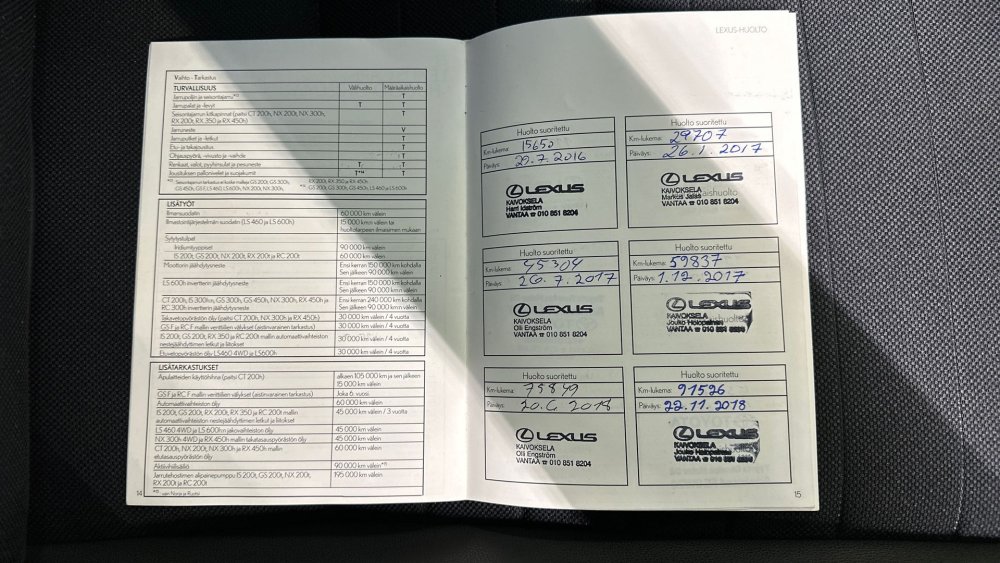 Vaihto - Tarkastus
TURVALLISUUS Välihuolto Määräaikaishuolto
Jarrupoljin ja seisontajarru*¹⁾ T
Jarrupalat ja -levyt T T
Seisontajarrun kitkapinnat (paitsi CT 200h, NX 200t, NX 300h,
RX 200t, RX 350 ja RX 450h) T
Jarruneste V
Jarruputket ja -letkut T
Etu- ja takajousitus T
Ohjauspyörä, -vivusto ja -vaihde T
Renkaat, valot, pyyhinsulat ja pesuneste T T
Jousituksen pallonivelet ja suojakumit T T
LISÄTYÖT
Ilmansuodatin 60 000 km välein
Ilmastointijärjestelmän suodatin (LS 460 ja LS 600h) 15 000 km välein tai
huoltotarpeen ilmaisimen mukaan
Sytytystulpat
Iridiumtyyppiset 90 000 km välein
IS 200t, GS 200t, NX 200t, RX 200t ja RC 200t 60 000 km välein
Moottorin jäähdytysneste Ensi kerran 150 000 km kohdalla
Sen jälkeen 90 000 km:n välein
LS 600h invertterin jäähdytysneste Ensi kerran 150 000 km kohdalla
Sen jälkeen 90 000 km:n välein
CT 200h, IS 300h, GS 300h, GS 450h, NX 300h, RX 450h ja
RC 300h invertterin jäähdytysneste Ensi kerran 240 000 km kohdalla
Sen jälkeen 90 000 km:n välein
Takavetopyörästön öljy (paitsi CT 200h, NX 300h ja RX 450h) 30 000 km välein / 4 vuotta
GS F ja RC F mallin venttiilien välykset (aistinvarainen tarkastus) 30 000 km välein / 4 vuotta
IS 200t, GS 200t, RX 350 ja RC 200t mallin automaattivaihteiston
nestejäähdyttimen letkut ja liitokset 30 000 km välein / 4 vuotta
Etuvetopyörästön öljy LS460 4WD ja LS600h 30 000 km välein / 4 vuotta
LISÄTARKASTUKSET
Apulaitteiden käyttöhihna (paitsi CT 200h) alkaen 105 000 km ja sen jälkeen
15 000 km välein
GS F ja RC F mallin venttiilien välykset (aistinvarainen tarkastus) Joka 6. vuosi
Automaattivaihteiston öljy 60 000 km välein
IS 200t, GS 200t, RX 200t, RX 350 ja RC 200t mallin
automaattivaihteiston nestejäähdyttimen letkut ja liitokset 45 000 km välein / 3 vuotta
LS 460 4WD ja LS 600h:n jakovaihteiston öljy 45 000 km välein
NX 300h 4WD ja RX 450h mallin takatasauspyörästön öljy 45 000 km välein
CT 200h, NX 200t, NX 300h ja RX 450h mallin
etutasauspyörästön öljy 60 000 km välein
Aktiivihiilisäiliö 90 000 km välein*¹⁾
Jarrutehostimen alipainepumppu IS 200t, GS 200t, NX 200t,
RX 200t ja RC 200t 195 000 km välein
*¹⁾: vain Norja ja Ruotsi
14
LEXUS-HUOLTO
Huolto suoritettu
Km-lukema: 15650
Päiväys: 29.7.2016
LEXUS
KAIVOKSELA
Harri Idström
VANTAA ☎ 010 851 8204
Huolto suoritettu
Km-lukema: 29707
Päiväys: 26.1.2017
LEXUS
KAIVOKSELA
Markus Jalas
VANTAA ☎ 010 851 8204
Huolto suoritettu
Km-lukema: 45304
Päiväys: 26.7.2017
LEXUS
KAIVOKSELA
Olli Engström
VANTAA ☎ 010 851 8204
Huolto suoritettu
Km-lukema: 59837
Päiväys: 1.12.2017
LEXUS
KAIVOKSELA
Jouko Holopainen
VANTAA ☎ 010 851 8204
Huolto suoritettu
Km-lukema: 75849
Päiväys: 20.6.2018
LEXUS
KAIVOKSELA
Olli Engström
VANTAA ☎ 010 851 8204
Huolto suoritettu
Km-lukema: 91526
Päiväys: 22.11.2018
LEXUS
KAIVOKSELA
VANTAA ☎ 010 851 8204
15